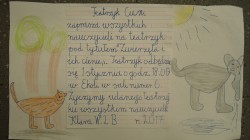 Teatrzyk Cieni
zaprasza wszystkich
nauczycieli na teatrzyk
pod tytułem Zwierzęta i
ich cienie. Teatrzyk odbędzie
się 1 stycznia o godz. 18:00
w Szkole w sali numer
Życzymy udanego teatrzy
ku wszystkim nauczycielom
Klasa nr 2 B r. 2017